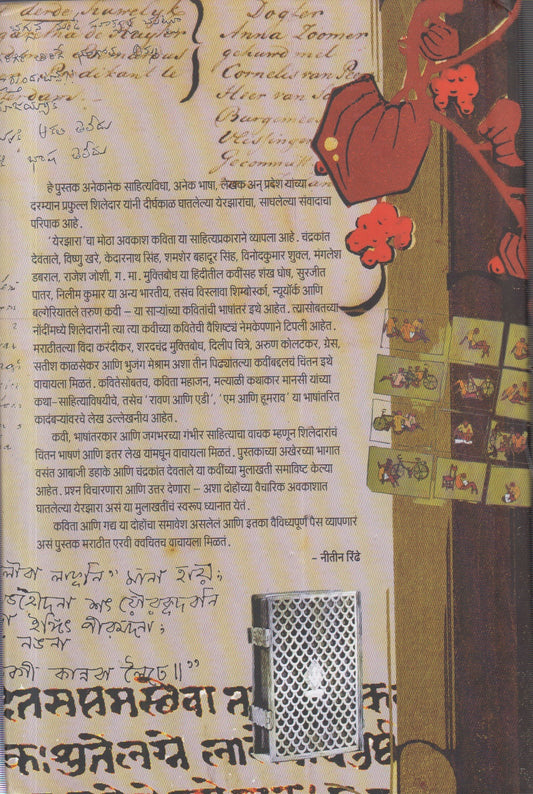 derde Huwelyk
Dogter
Anna Zoomer
gehuurd met
Cornelis van
Heer van
Burgemees
Vlissingen
Gecommitt
हे पुस्तक अनेकानेक साहित्यविधा, अनेक भाषा, लेखक अन् प्रदेश यांच्या
दरम्यान प्रफुल्ल शिलेदार यांनी दीर्घकाळ घातलेल्या येरझारांचा, साधलेल्या संवादाचा
परिपाक आहे.
'येरझारा'चा मोठा अवकाश कविता या साहित्यप्रकाराने व्यापला आहे. चंद्रकांत
देवताले, विष्णु खरे, केदारनाथ सिंह, शमशेर बहादूर सिंह, विनोदकुमार शुक्ल, मंगलेश
डबराल, राजेश जोशी, ग. मा. मुक्तिबोध या हिदीतील कवींसह शंख घोष, सुरजीत
पातर, निलीम कुमार या अन्य भारतीय, तसंच विस्लावा शिम्बोर्स्का, न्यूयॉर्क आणि
बल्गेरियातले तरुण कवी – या साऱ्यांच्या कवितांची भाषांतरं इथे आहेत. त्यासोबतच्या
नोंदींमध्ये शिलेदारांनी त्या त्या कवीच्या कवितेची वैशिष्ट्यं नेमकेपणाने टिपली आहेत.
मराठीतल्या विंदा करंदीकर, शरदचंद्र मुक्तिबोध, दिलीप चित्रे, अरुण कोलटकर, ग्रेस,
सतीश काळसेकर आणि भुजंग मेश्राम अशा तीन पिढ्यांतल्या कवींबद्दलचं चिंतन इथे
वाचायला मिळतं. कवितेसोबतच, कविता महाजन, मल्याळी कथाकार मानसी यांच्या
कथा-साहित्याविषयीचे, तसेच 'रावण आणि एडी', 'एम आणि हूमराव' या भाषांतरित
कादंबऱ्यांवरचे लेख उल्लेखनीय आहेत.
कवी, भाषांतरकार आणि जगभरच्या गंभीर साहित्याचा वाचक म्हणून शिलेदारांचं
चिंतन भाषणं आणि इतर लेख यांमधून वाचायला मिळतं. पुस्तकाच्या अखेरच्या भागात
वसंत आबाजी डहाके आणि चंद्रकांत देवताले या कवींच्या मुलाखती समाविष्ट केल्या
आहेत. प्रश्न विचारणारा आणि उत्तर देणारा – अशा दोहोंच्या वैचारिक अवकाशात
घातलेल्या येरझारा असं या मुलाखतींचं स्वरूप ध्यानात येतं.
कविता आणि गद्य या दोहोंचा समावेश असलेलं आणि इतका वैविध्यपूर्ण पैस व्यापणारं
असं पुस्तक मराठीत एरवी क्वचितच वाचायला मिळतं.
- नीतीन रिंढे